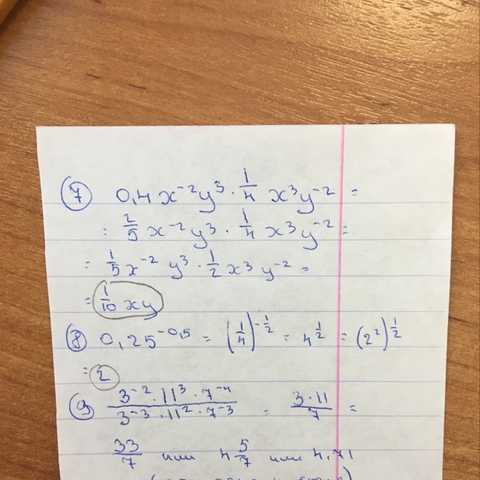 ⑦ 0,4x⁻²y³ · 1/4 x³y⁻² =
= 2/5 x⁻²y³ · 1/4 x³y⁻² =
= 1/5 x⁻² y³ · 1/2 x³ y⁻² =
= 1/10 xy
⑧ 0,25⁻⁰·⁵ = (1/4)^(-1/2) = 4^(1/2) = (2²)^(1/2)
= 2
⑨ (3⁻² · 11³ · 7⁻⁴)/(3⁻³ · 11² · 7⁻³) = (3 · 11)/7 =
33/7 или 4 5/7 или 4,71